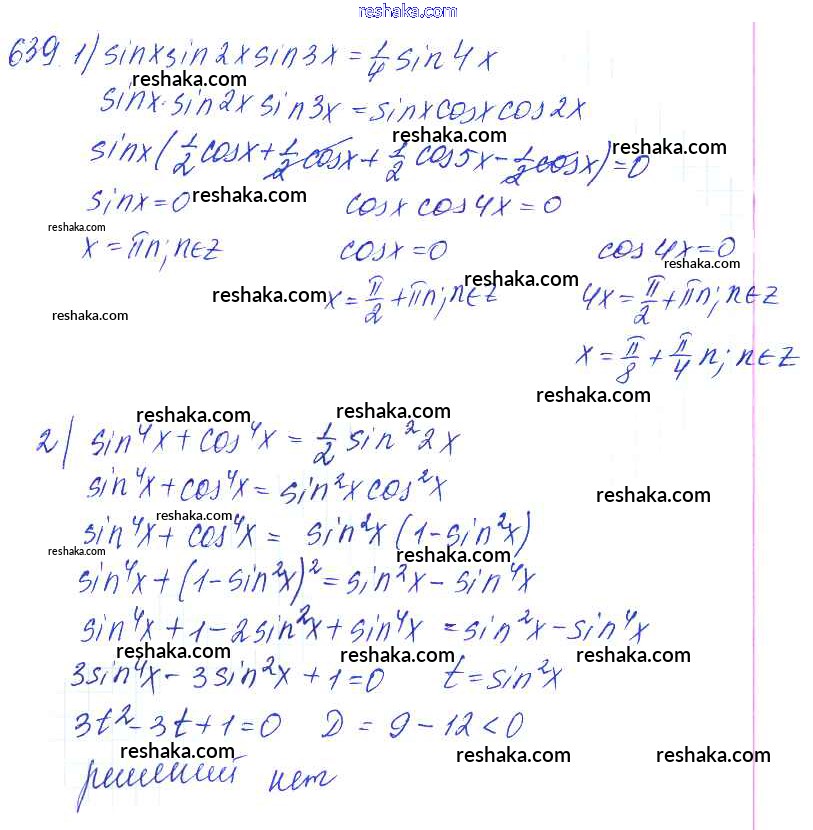 reshaka.com
639. 1) sinx sin2x sin3x = 1/4 sin4x
reshaka.com reshaka.com
sinx·sin2x sin3x = sinx cosx cos2x
reshaka.com reshaka.com
sinx(1/2 cosx + 1/2 cosx + 1/2 cos5x - 1/2 cosx) = 0
reshaka.com
sinx = 0 cosx cos4x = 0
reshaka.com
x = πn; n∈z cosx = 0 cos4x = 0
reshaka.com reshaka.com reshaka.com
x = π/2 + πn; n∈z 4x = π/2 + πn; n∈z
reshaka.com
x = π/8 + π/4 n; n∈z
reshaka.com
reshaka.com reshaka.com
2) sin⁴x + cos⁴x = 1/2 sin²2x
sin⁴x + cos⁴x = sin²x cos²x
reshaka.com
reshaka.com
sin⁴x + cos⁴x = sin²x (1 - sin²x)
reshaka.com reshaka.com
sin⁴x + (1 - sin²x)² = sin²x - sin⁴x
sin⁴x + 1 - 2sin²x + sin⁴x = sin²x - sin⁴x
reshaka.com reshaka.com reshaka.com
3sin⁴x - 3sin²x + 1 = 0 t = sin²x
3t² - 3t + 1 = 0 D = 9 - 12 < 0
reshaka.com reshaka.com reshaka.com
решений нет